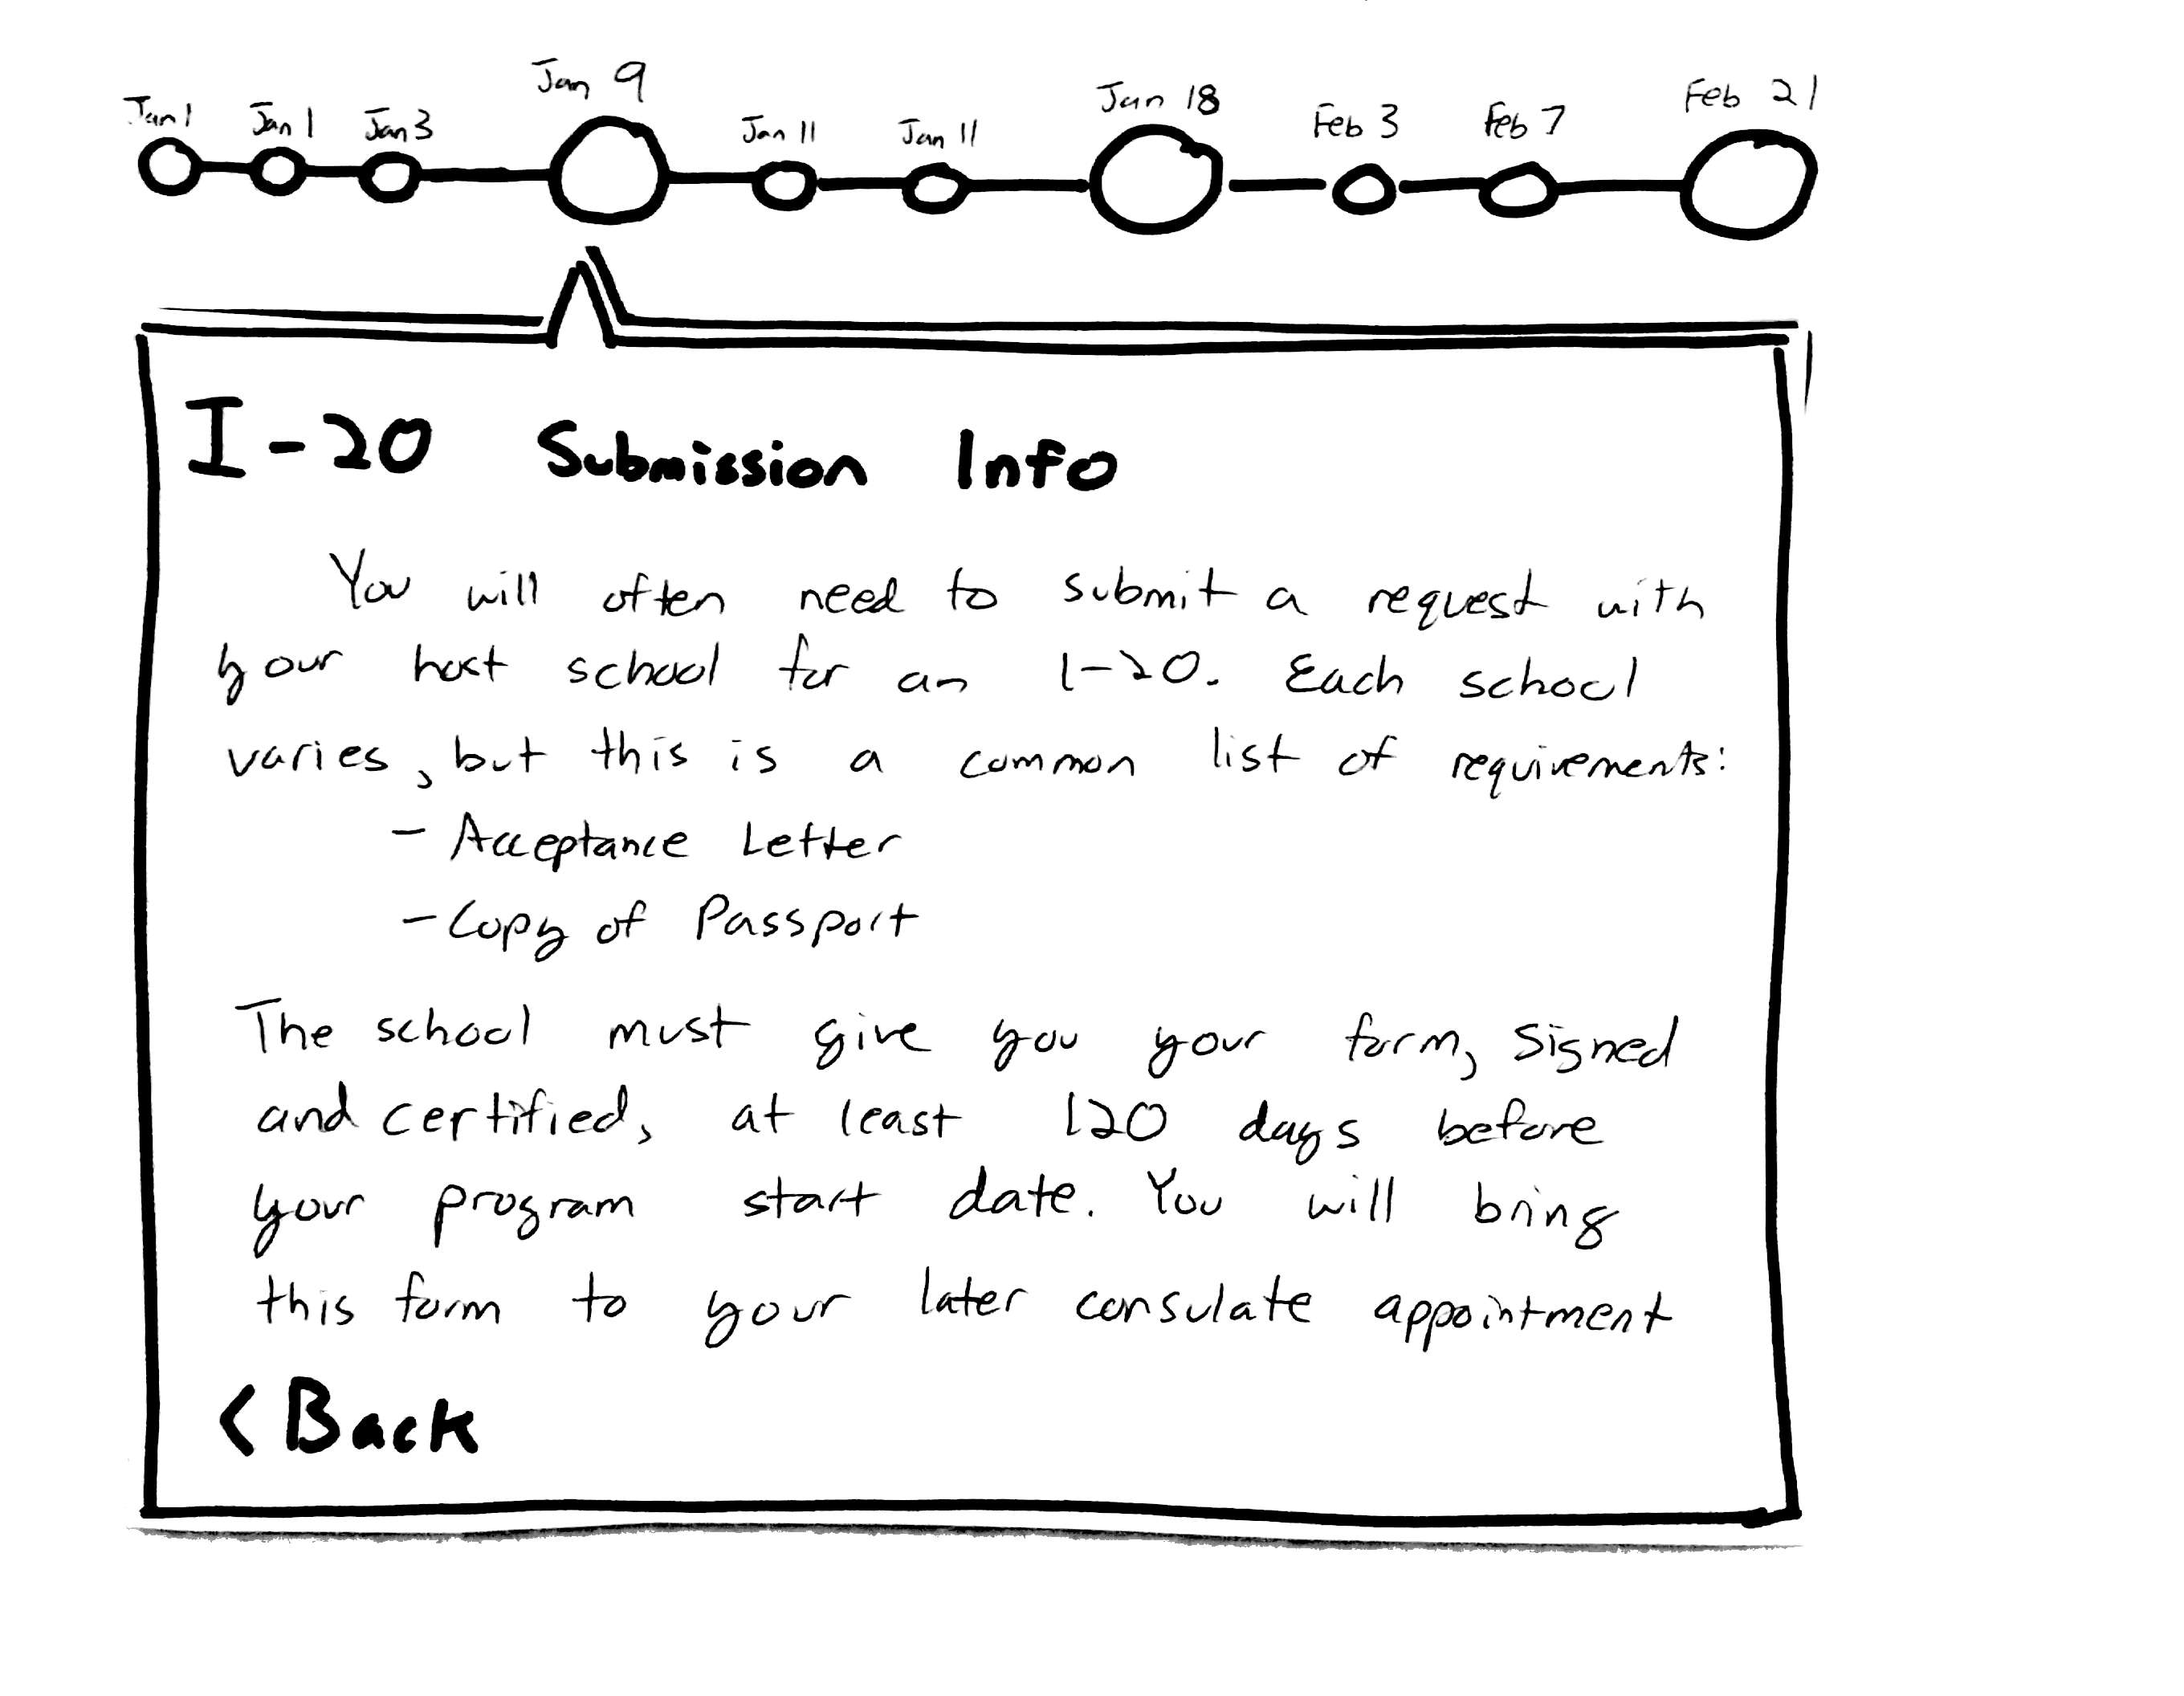 Jan 1 Jan 1 Jan 3 Jan 9 Jan 11 Jan 11 Jan 18 Feb 3 Feb 7 Feb 21
I-20 Submission Info
You will often need to submit a request with
your host school for an I-20. Each school
varies, but this is a common list of requirements:
- Acceptance Letter
- Copy of Passport
The school must give you your form, signed
and certified, at least 120 days before
your program start date. You will bring
this form to your later consulate appointment
< Back